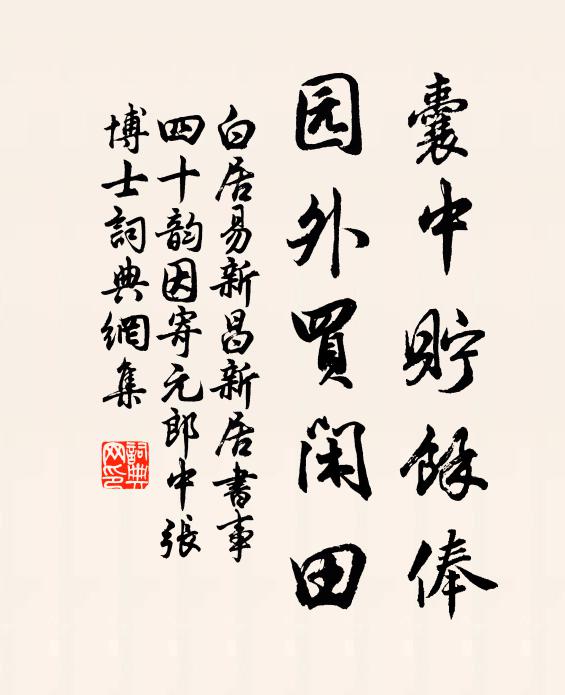 囊中貯餘俸
园外買闲田
白居易新昌新居書事
四十韵因寄元郎中張
博士詞典網集
詞典
网印